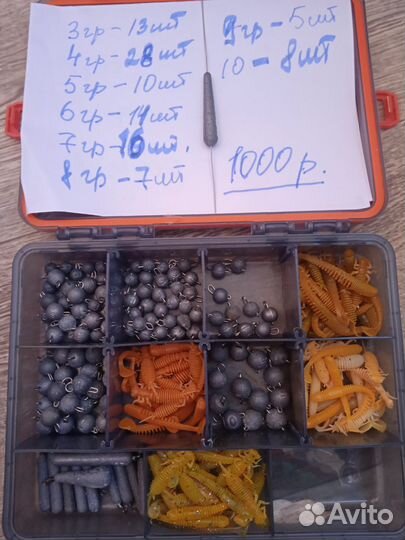 3гр-13шт
4гр-28шт
5гр-10шт
6гр-14шт
7гр-16шт.
8гр-7шт
9гр-5шт
10-8шт
1000р.
Avito